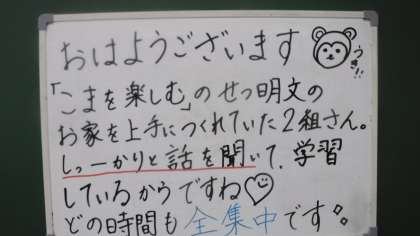 おはようございます
うき!!
「こまを楽しむ」のせつ明文の
お家を上手につくれていた2組さん。
しっーかりと話を聞いて、学習
しているかうですね
どの時間も全集中です。